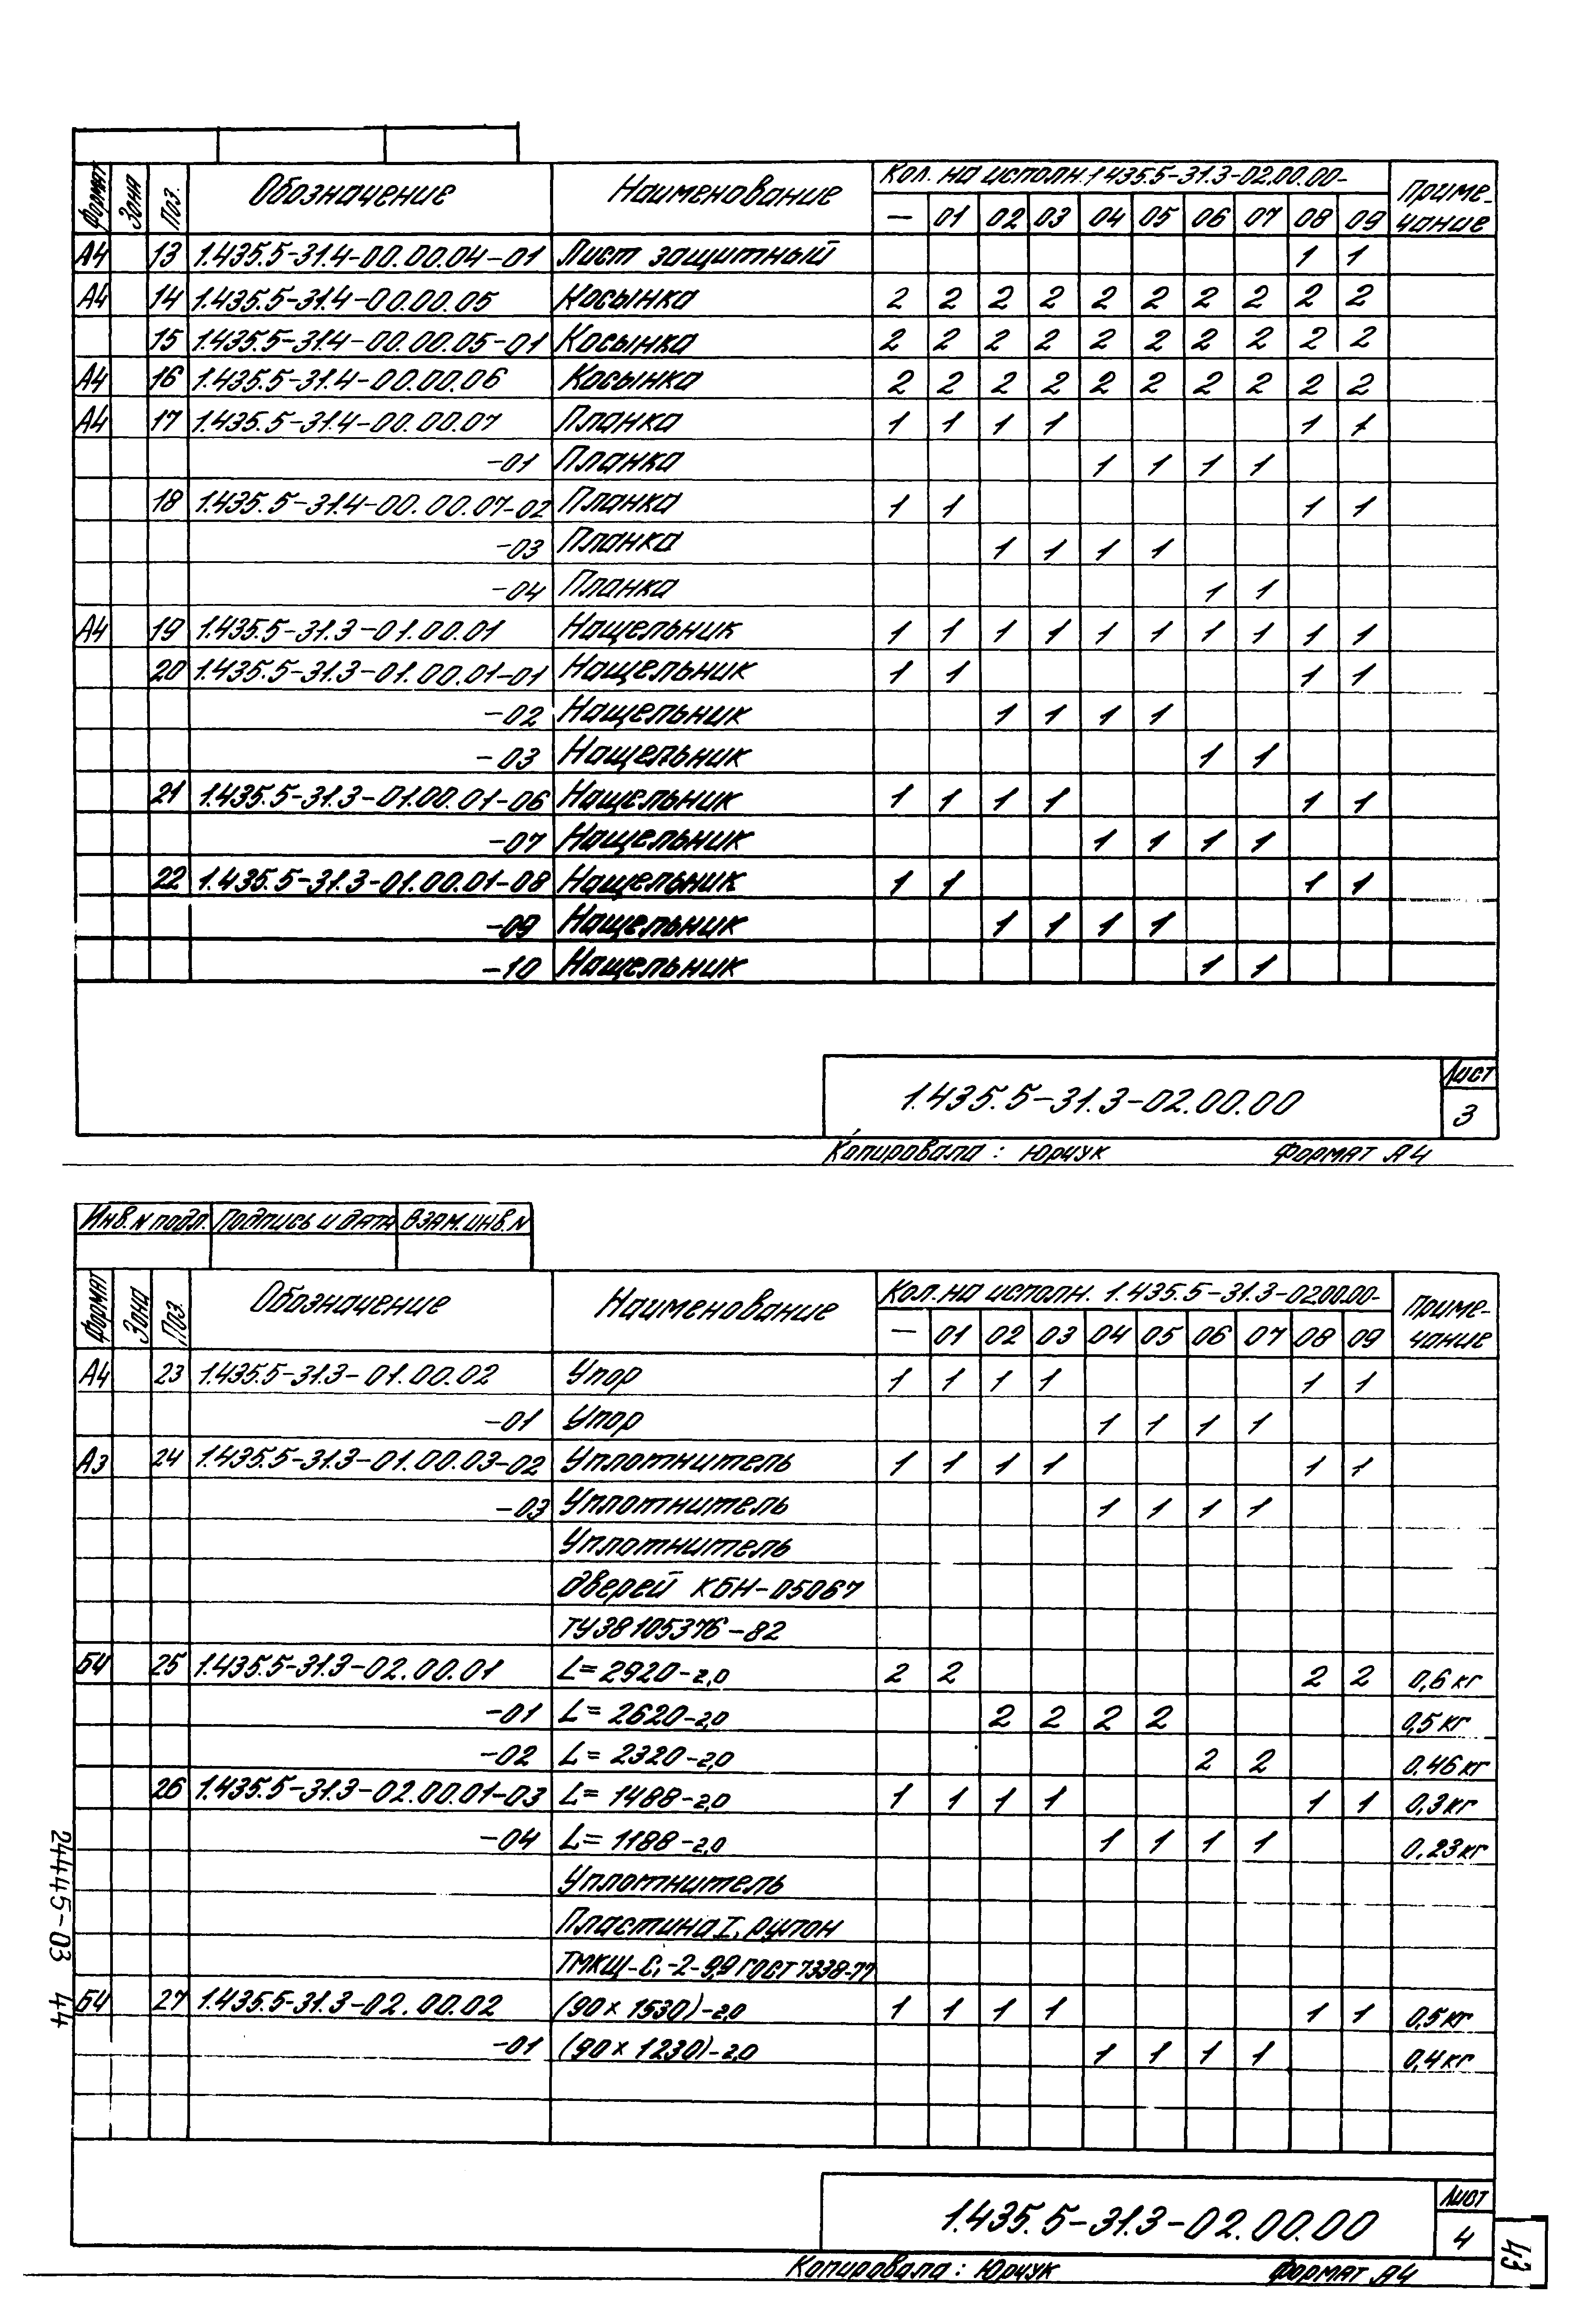 Формат Зона Поз. Обозначение Наименование Кол. на исполн. 1.435.5-31.3-02.00.00- Приме-
чание
— 01 02 03 04 05 06 07 08 09
А4 13 1.435.5-31.4-00.00.04-01 Лист защитный 1 1
А4 14 1.435.5-31.4-00.00.05 Косынка 2 2 2 2 2 2 2 2 2 2
15 1.435.5-31.4-00.00.05-01 Косынка 2 2 2 2 2 2 2 2 2 2
А4 16 1.435.5-31.4-00.00.06 Косынка 2 2 2 2 2 2 2 2 2 2
А4 17 1.435.5-31.4-00.00.07 Планка 1 1 1 1 1 1
-01 Планка 1 1 1 1
18 1.435.5-31.4-00.00.07-02 Планка 1 1 1 1
-03 Планка 1 1 1 1
-04 Планка 1 1
А4 19 1.435.5-31.3-01.00.01 Нащельник 1 1 1 1 1 1 1 1 1 1
20 1.435.5-31.3-01.00.01-01 Нащельник 1 1 1 1
-02 Нащельник 1 1 1 1
-03 Нащельник 1 1
21 1.435.5-31.3-01.00.01-06 Нащельник 1 1 1 1 1 1
-07 Нащельник 1 1 1 1
22 1.435.5-31.3-01.00.01-08 Нащельник 1 1 1 1
-09 Нащельник 1 1 1 1
-10 Нащельник 1 1
1.435.5-31.3-02.00.00
Лист
3
Копировала: Юрчук Формат А4
Инв. N подл. Подпись и дата Взам. инв. N
Формат Зона Поз. Обозначение Наименование Кол. на исполн. 1.435.5-31.3-02.00.00- Приме-
чание
— 01 02 03 04 05 06 07 08 09
А4 23 1.435.5-31.3-01.00.02 Упор 1 1 1 1 1 1
-01 Упор 1 1 1 1
А3 24 1.435.5-31.3-01.00.03-02 Уплотнитель 1 1 1 1 1 1
-03 Уплотнитель 1 1 1 1
Уплотнитель
дверей КБН-05067
ТУ38105376-82
БЧ 25 1.435.5-31.3-02.00.01 L=2920-2,0 2 2 2 2 0,6 кг
-01 L=2620-2,0 2 2 2 2 0,5 кг
-02 L=2320-2,0 2 2 0,46 кг
26 1.435.5-31.3-02.00.01-03 L=1488-2,0 1 1 1 1 1 1 0,3 кг
-04 L=1188-2,0 1 1 1 1 0,23 кг
Уплотнитель
Пластина I, рулон
ТМКЩ-С1-2-9,9 ГОСТ 7338-77
БЧ 27 1.435.5-31.3-02.00.02 (90×1530)-2,0 1 1 1 1 1 1 0,5 кг
-01 (90×1230)-2,0 1 1 1 1 0,4 кг
1.435.5-31.3-02.00.00
Лист
4
Копировала: Юрчук Формат А4
24445-03 44
43